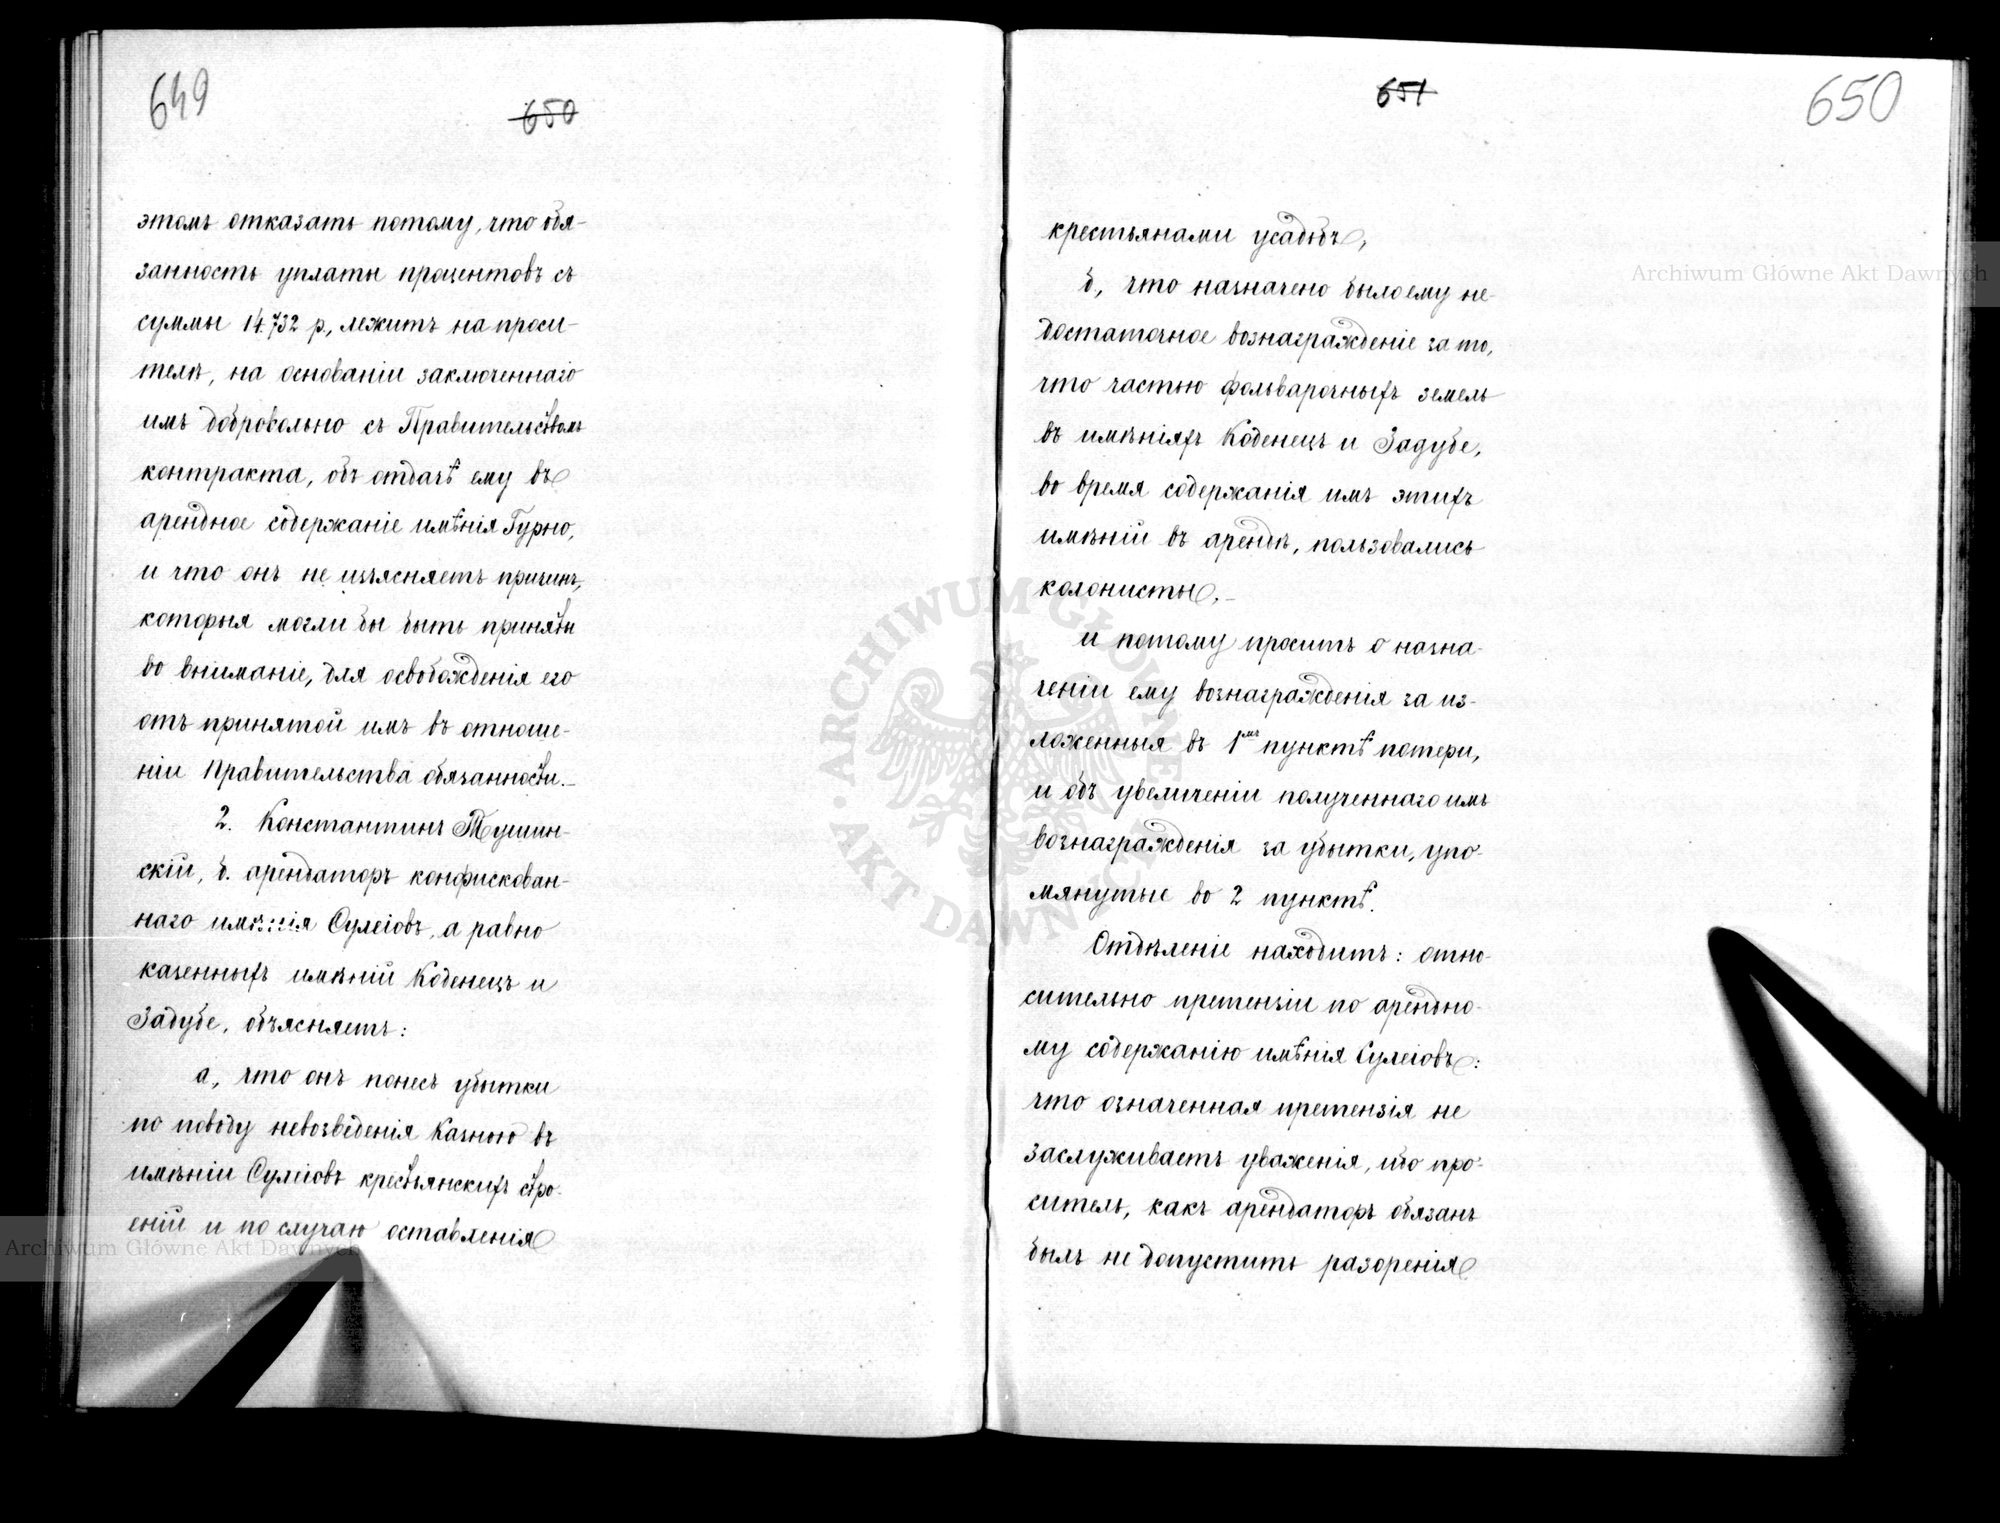 649
650
этомъ отказать потому, что обя-
занность уплаты процентовъ съ
суммы 14.732 р., лежитъ на проси-
телѣ, на основаніи заключеннаго
имъ добровольно съ Правительствомъ
контракта, объ отдачѣ ему въ
арендное содержаніе имѣнія Гурно,
и что онъ не изъясняетъ причинъ,
которыя могли бы быть приняты
во вниманіе, для освобожденія его
отъ принятой имъ въ отноше-
ніи Правительства обязанности.
2. Константинъ Тушин-
скій, б. арендаторъ конфискован-
наго имѣнія Сулеіовъ, а равно
казенныхъ имѣній Коденецъ и
Задубе, объясняетъ:
а, что онъ понесъ убытки
по поводу невозведенія Казною въ
имѣніи Сулеіовъ крестьянскихъ стро-
еній и по случаю оставленія
651
650
крестьянами усадьбъ,
б, что назначено было ему не-
достаточное вознагражденіе за то,
что частью фольварочныхъ земель
въ имѣніяхъ Коденецъ и Задубе,
во время содержанія имъ этихъ
имѣній въ арендѣ, пользовались
колонисты,
и потому проситъ о назна-
ченіи ему вознагражденія за из-
ложенныя въ 1мъ пунктѣ потери,
и объ увеличеніи полученнаго имъ
вознагражденія за убытки, упо-
мянутые во 2 пунктѣ.
Отдѣленіе находитъ: отно-
сительно претензіи по арендно-
му содержанію имѣнія Сулеіовъ:
что означенная претензія не
заслуживаетъ уваженія, ибо про-
ситель, какъ арендаторъ обязанъ
былъ не допустить разоренія
Archiwum Główne Akt Dawnych
Archiwum Główne Akt Dawnych
ARCHIWUM GŁÓWNE AKT DAWNYCH